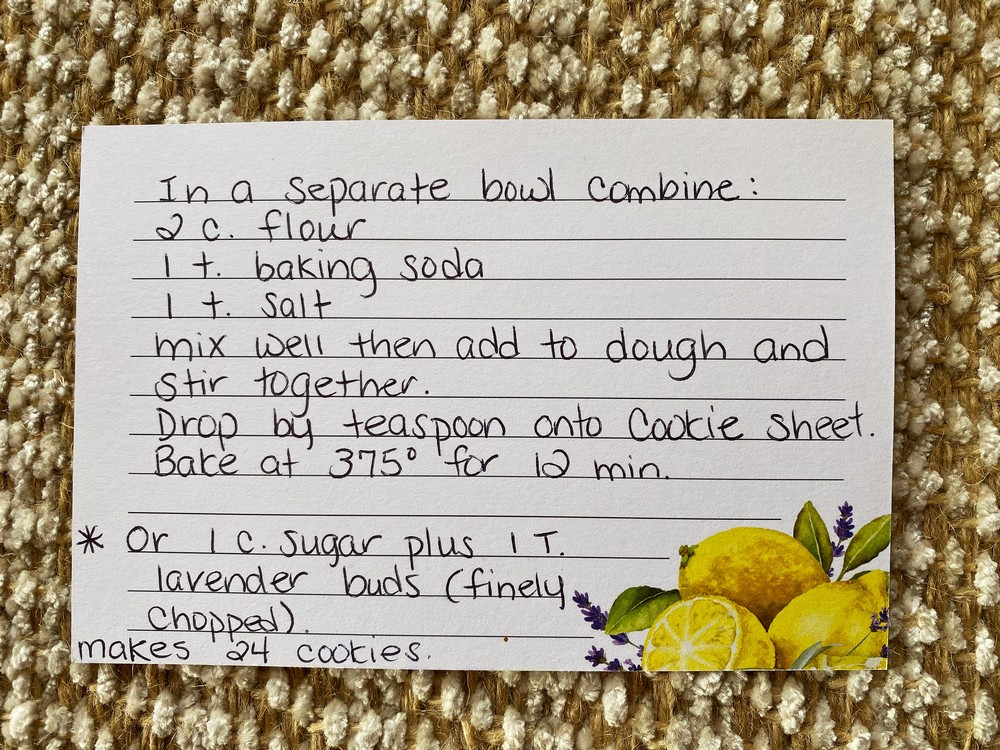 In a separate bowl combine:
2 c. flour
1 t. baking soda
1 t. salt
mix well then add to dough and
stir together.
Drop by teaspoon onto Cookie sheet.
Bake at 375° for 12 min.
* Or 1 c. sugar plus 1 T.
lavender buds (finely
chopped).
makes 24 cookies.